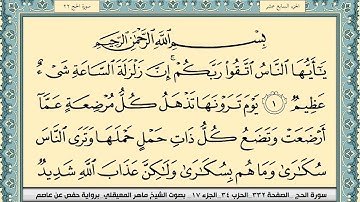 الجزء السابع عشر
سورة الحج ٢٢
بِسْمِ ٱللَّهِ ٱلرَّحْمَٰنِ ٱلرَّحِيمِ
يَٰٓأَيُّهَا ٱلنَّاسُ ٱتَّقُوا۟ رَبَّكُمْ ۚ إِنَّ زَلْزَلَةَ ٱلسَّاعَةِ شَىْءٌ
عَظِيمٌ ١ يَوْمَ تَرَوْنَهَا تَذْهَلُ كُلُّ مُرْضِعَةٍ عَمَّآ
أَرْضَعَتْ وَتَضَعُ كُلُّ ذَاتِ حَمْلٍ حَمْلَهَا وَتَرَى ٱلنَّاسَ
سُكَٰرَىٰ وَمَا هُم بِسُكَٰرَىٰ وَلَٰكِنَّ عَذَابَ ٱللَّهِ شَدِيدٌ
سورة الحج - الصفحة ٣٣٢ - الحزب ٣٤ - الجزء ١٧ - بصوت الشيخ ماهر المعيقلي - برواية حفص عن عاصم